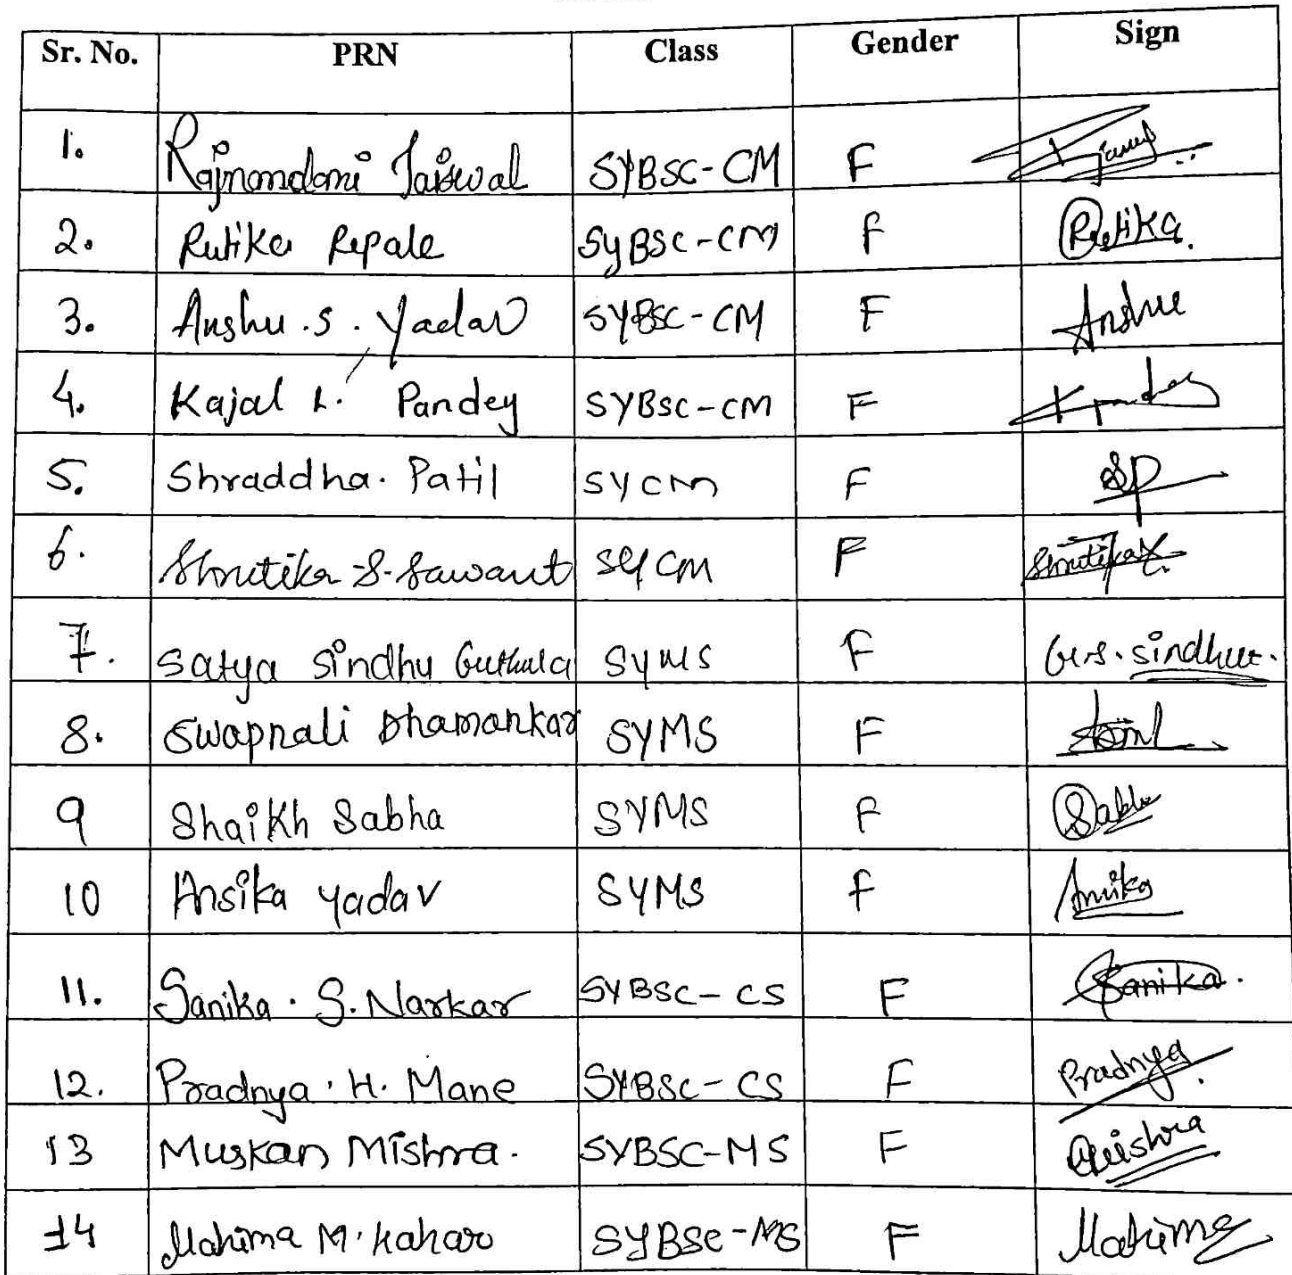 Sr. No. PRN Class Gender Sign
1. Rajnandani Jaiswal SYBSC-CM F
2. Rutika Repale SyBSC-CM F Rutika.
3. Anshu .S. Yadav SYBSC-CM F Anshu
4. Kajal L. Pandey SYBSC-CM F
5. Shraddha. Patil SYCM F SP
6. Shrutika S. Sawant SYCM F Shrutika
7. Satya Sindhu Guthula SYMS F G.S. Sindhu.
8. Swapnali Dhamankar SYMS F
9 Shaikh Sabha SYMS F Sabha
10 Ansika yadav SYMS F Ansika
11. Sanika. S. Narkar SYBSC-CS F Sanika.
12. Pradnya. H. Mane SYBSC-CS F Pradnya.
13 Muskan Mishra. SYBSC-MS F Mishra
14 Mahima M. Kahar SYBSC-MS F Mahima